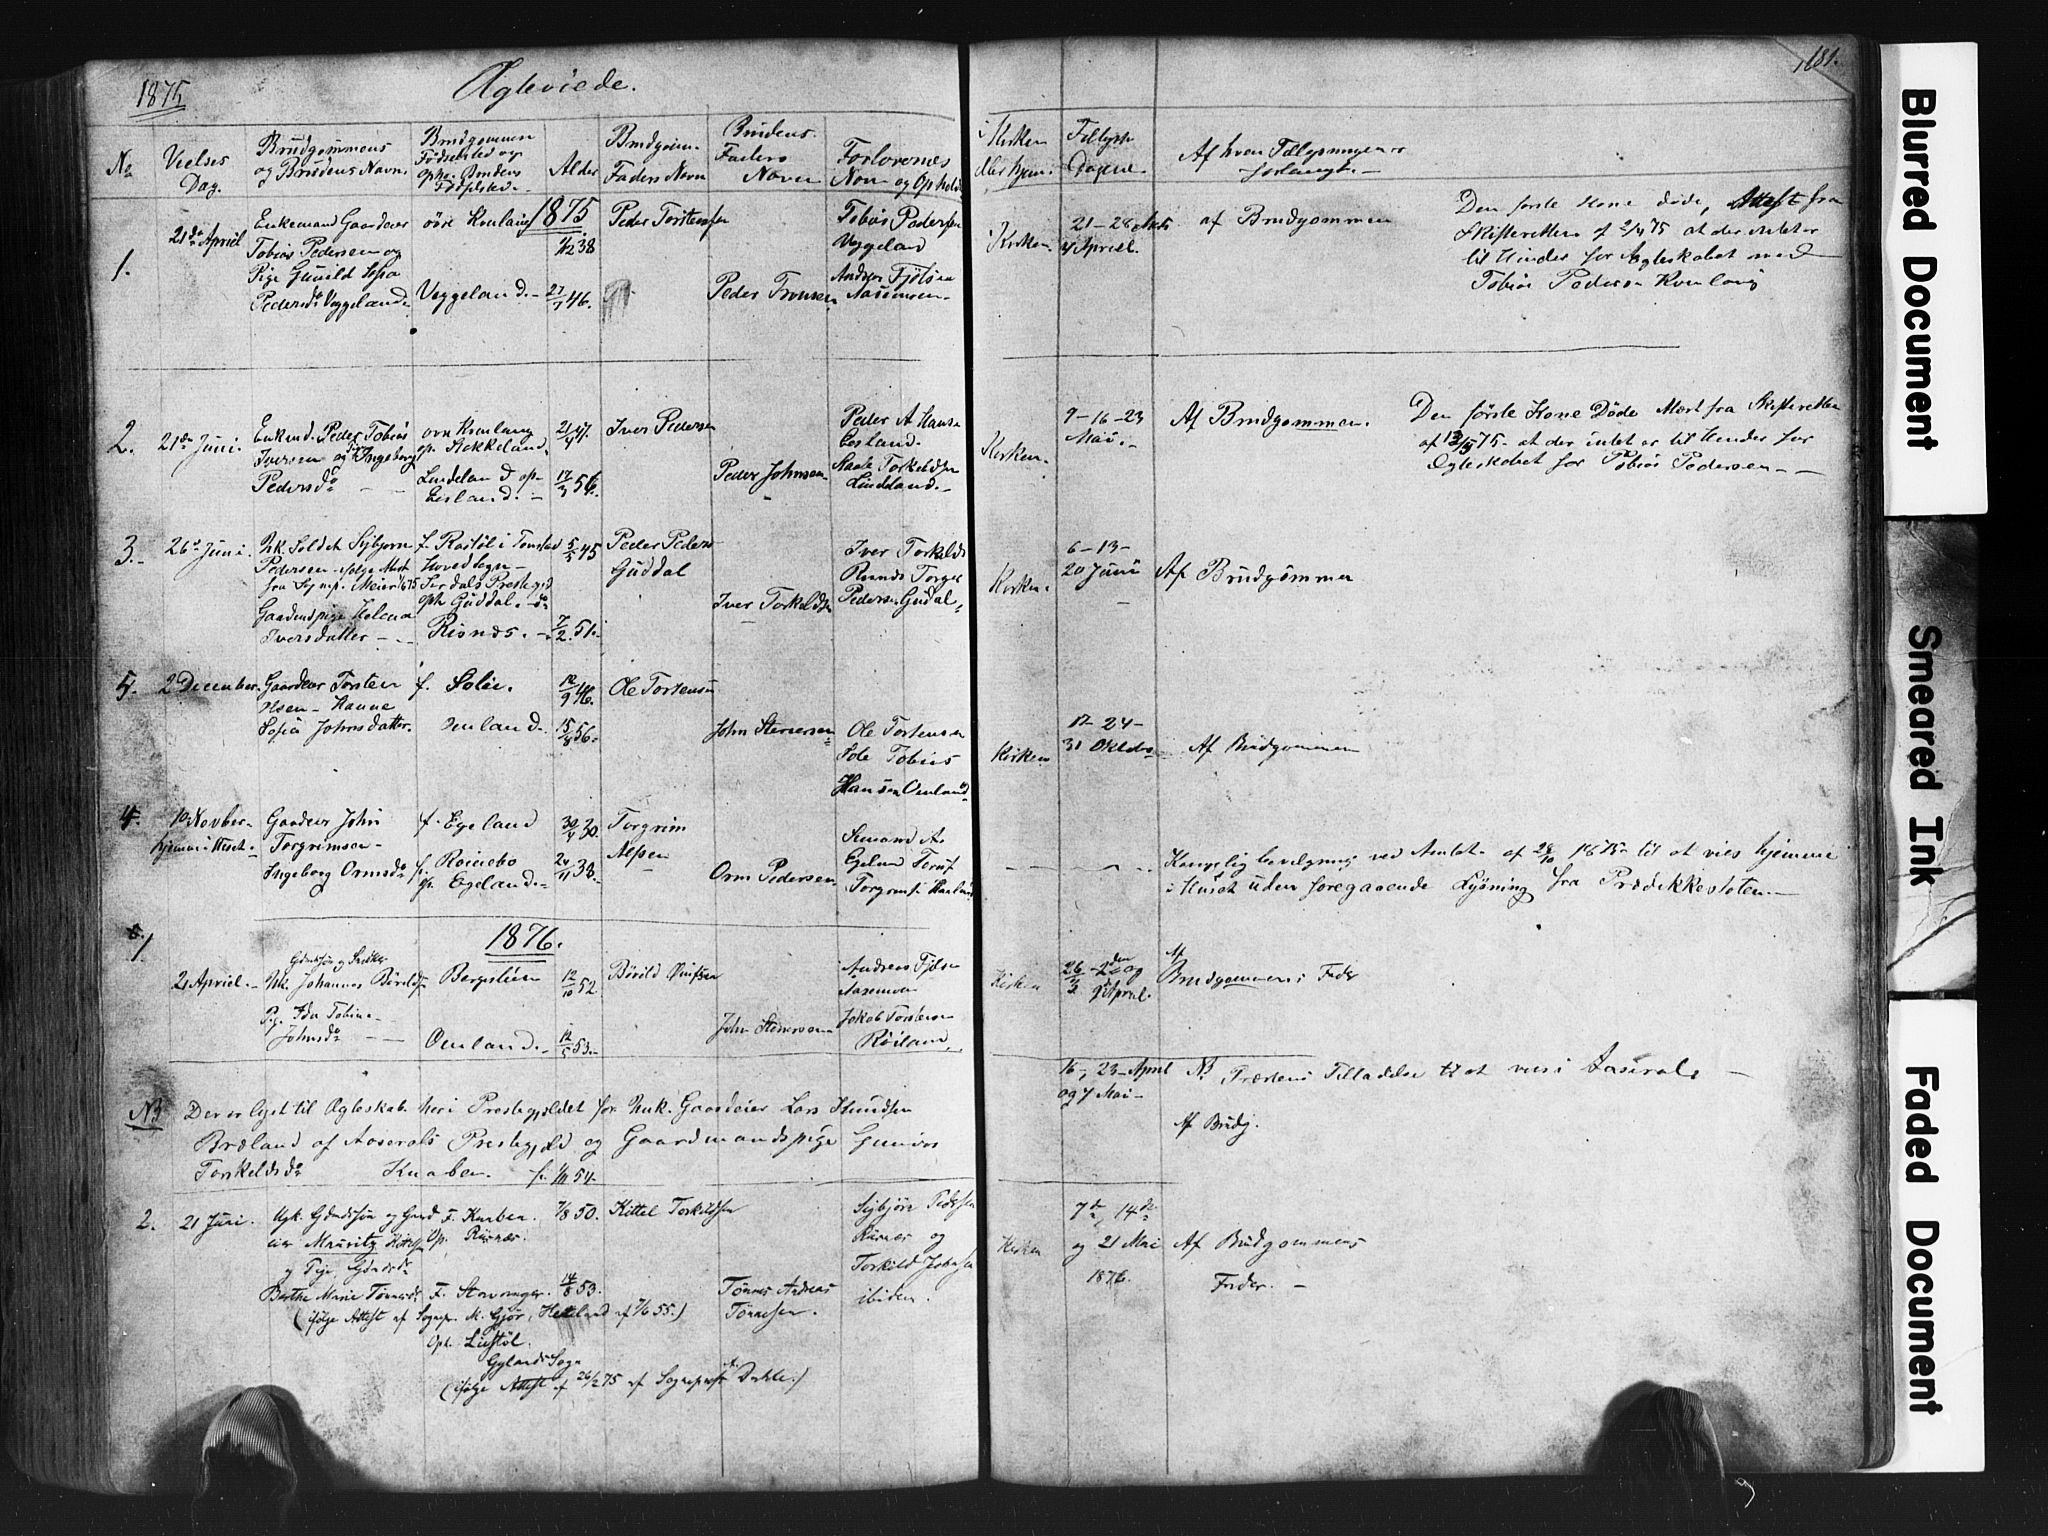 1875
Ægteviede.
181.
No
Vielses
Dag.
Brudgommens
og Brudens Navn
Brudgommens
Fødested og
Oph. Brudens
Fødested.
Alder
Brudgom.
Faders Navn
Brudens
Faders
Navn
Forlovernes
Navn og Ophold
i Kirken
eller hjem.
Tillysn.
Dagene.
Af hvem Tillysningen er
forlangt.
1.
21de April
Enkemand Gaardeier
Tobias Pedersen og
Pige Gunild Sofia
Pedersd. Veggeland.
øvre Kvenlaug
Veggeland.
1875
1/12 38
27/7 46.
Peder Torstensen
Peder Tronsen
Tobias Pedersen
Veggeland
Andreas Fjølsen
Aasensen.
Kirken
21-28 Marts
4 April.
af Brudgommen
Den første Kone døde, Attest fra
Skifteretten af 2/4 75 at der intet er
til Hinder for Ægteskabet med
Tobias Pedersen Kvenlaug
2.
21de Juni.
Enkmd. Peder Tobias
Iversen og Ingeborg
Pedersd.
øvre Kvenlaug
op. Stekkeland.
Lindeland op.
Eesland.
21/4 47.
17/3 56.
Iver Pedersen
Peder Johnsen
Peder A Hansen
Eesland.
Aade Torkeldsen
Lindland.
Kirken.
9-16-23
Mai.
Af Brudgommen.
Den første Kone Døde Attest fra Skifteretten
af 13/5 75 at der intet er til Hinder for
Ægteskabet for Tobias Pedersen
3.
26de Juni.
Uk. Soldat Sigbjørn
Pedersen ifølge Attest
Gaardmdspige Helena
Iversdatter
f. Rostøl i Tonstad
Hovedsogn
Sirdals Prestegjd
oph. Guddal.
Risnes.
5/5 45
7/2 51.
Peder Peders
Guddal
Iver Torkeldsen
Iver Torkelds
Risnes Torger
Pedersen Gudal
Kirken.
6-13-
20 Juni
Af Brudgommen
5.
2 December.
Gaardeier Torsten
Olsen - Hanne
Sofia Johnsdatter.
f. Solie.
Øenland.
12/9 46.
15/8 56.
Ole Tortensen
John Stenersen
Ole Tortensen
Sole Tobias
Hansen Øenland
Kirken
17-24-
31 Oktober
Af Brudgommen
4.
10 Novber.
hjemme i Huset.
Gaardeier John
Torgrimsen
Ingeborg Ormsd.
f. Egeland
f. Roinebo
op. Egeland.
30/4 30.
24/11 38.
Torgrim
Alfsen
Orm Pedersen
Simond A.
Egeland
Torgrims.
Kongelig bevilgning ved Amtet af 28/10 1875 til at vies hjemme
i Huset uden foregaaende Lysning fra Prædikkestolen.
1876.
1
21 April.
Gdmdssøn og Snedker
Uk. Johannes Børilds.
Pig. Ida Tobine
Johnsd.
Bergslien
Øenland.
12/10 52.
12/5 53.
Børild
John Stenersen
Andreas Fjølsen
Aasensen
Jakob Torstensen
Røiland.
Kirken
26/3 - 2den og
9 April.
Af
Brudgommens Fader
NB
Der er lyst til Ægteskab her i Prestegjeldet for Unk. Gaardeier Lars Knudsen
Breland af Aaserals Prestegjeld og Gaardmandspige Gunvor
Torkeldsd. Knaben. f. 1/11 54.
16, 23 April
og 7 Mai
NB Præstens Tilladelse til at vies i Aaseral.
Af Brudg.
2.
21 Juni.
Ugk. Gdmdssøn og Gaard
eier Mauritz Kittels.
og Pige, Gdmdsd.
Berthe Marie Tønnesd.
F. Knaben.
Op. Risnes.
F. Stavanger.
7/8 50.
14/8 53.
Kittel Torkildsen
Tønnes Andreas
Tønnesen.
Sigbjørn Pedersen
Risnes og
Torkild Jakobsen
ibiden.
(ifølge Attest af Sognepr. M. Gjør, Hetland af 7/6 55.)
Oph. Liestøl.
Gylands Sogn
(ifølge Attest af 26/2 75 af Sogneprest Dahle.)
Kirken
7de, 14de
og 21 Mai
1876.
Af Brudgommens
Fader.
Blurred Document
Smeared Ink
Faded Document